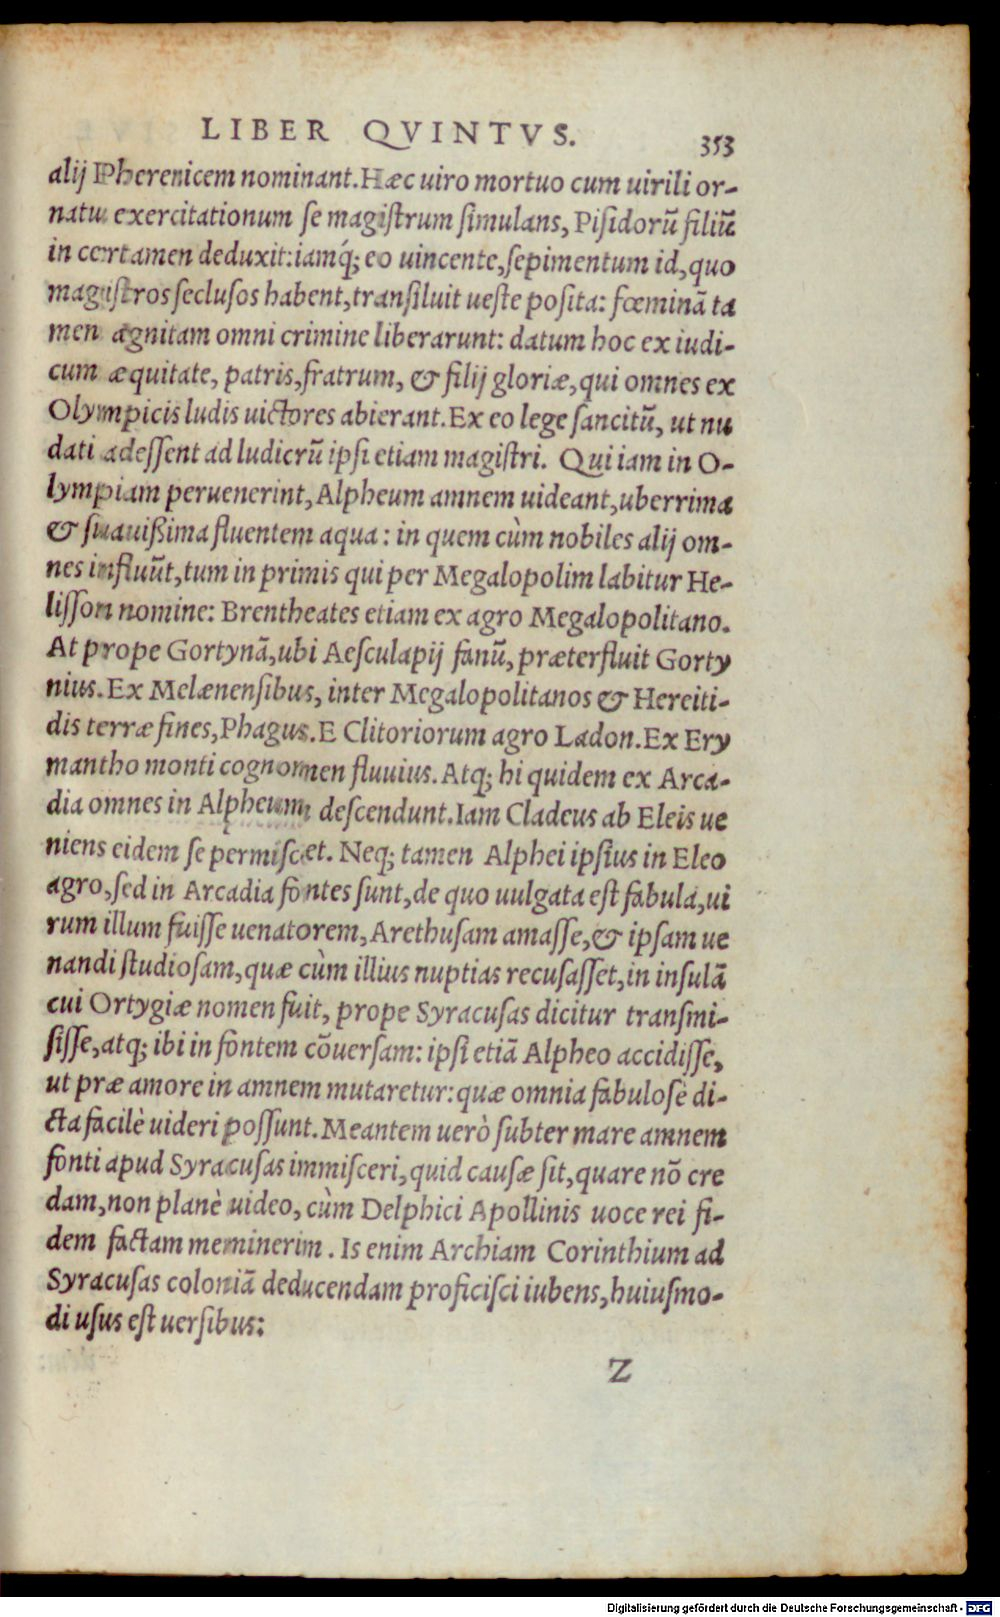 LIBER QVINTVS. 353
alij Pherenicem nominant. Hæc uiro mortuo cum uirili or-
natu exercitationum se magistrum simulans, Pisidorū filiū
in certamen deduxit: iamq́; eo uincente, sepimentum id, quo
magistros seclusos habent, transiluit ueste posita: fœminā ta
men agnitam omni crimine liberarunt: datum hoc ex iudi-
cum æquitate, patris, fratrum, & filij gloriæ, qui omnes ex
Olympicis ludis uictores abierant. Ex eo lege sancitū, ut nu
dati adessent ad ludicrū ipsi etiam magistri. Qui iam in O-
lympiam peruenerint, Alpheum amnem uideant, uberrima
& suauißima fluentem aqua: in quem cùm nobiles alij om-
nes influūt, tum in primis qui per Megalopolim labitur He-
lisson nomine: Brentheates etiam ex agro Megalopolitano.
At prope Gortynā, ubi Aesculapij fanū, præterfluit Gorty
nius. Ex Melænensibus, inter Megalopolitanos & Hereiti-
dis terræ fines, Phagus. E Clitoriorum agro Ladon. Ex Ery
mantho monti cognomen fluuius. Atq; hi quidem ex Arca-
dia omnes in Alpheum descendunt. Iam Cladeus ab Eleis ue
niens eidem se permiscet. Neq; tamen Alphei ipsius in Eleo
agro, sed in Arcadia fontes sunt, de quo uulgata est fabula, ui
rum illum fuisse uenatorem, Arethusam amasse, & ipsam ue
nandi studiosam, quæ cùm illius nuptias recusasset, in insulā
cui Ortygiæ nomen fuit, prope Syracusas dicitur transmi-
sisse, atq; ibi in fontem cōuersam: ipsi etiā Alpheo accidisse,
ut præ amore in amnem mutaretur: quæ omnia fabulosè di-
cta facilè uideri possunt. Meantem uerò subter mare amnem
fonti apud Syracusas immisceri, quid causæ sit, quare nō cre
dam, non planè uideo, cùm Delphici Apollinis uoce rei fi-
dem factam meminerim. Is enim Archiam Corinthium ad
Syracusas coloniā deducendam proficisci iubens, huiusmo-
di usus est uersibus:
Z
Digitalisierung gefördert durch die Deutsche Forschungsgemeinschaft - DFG